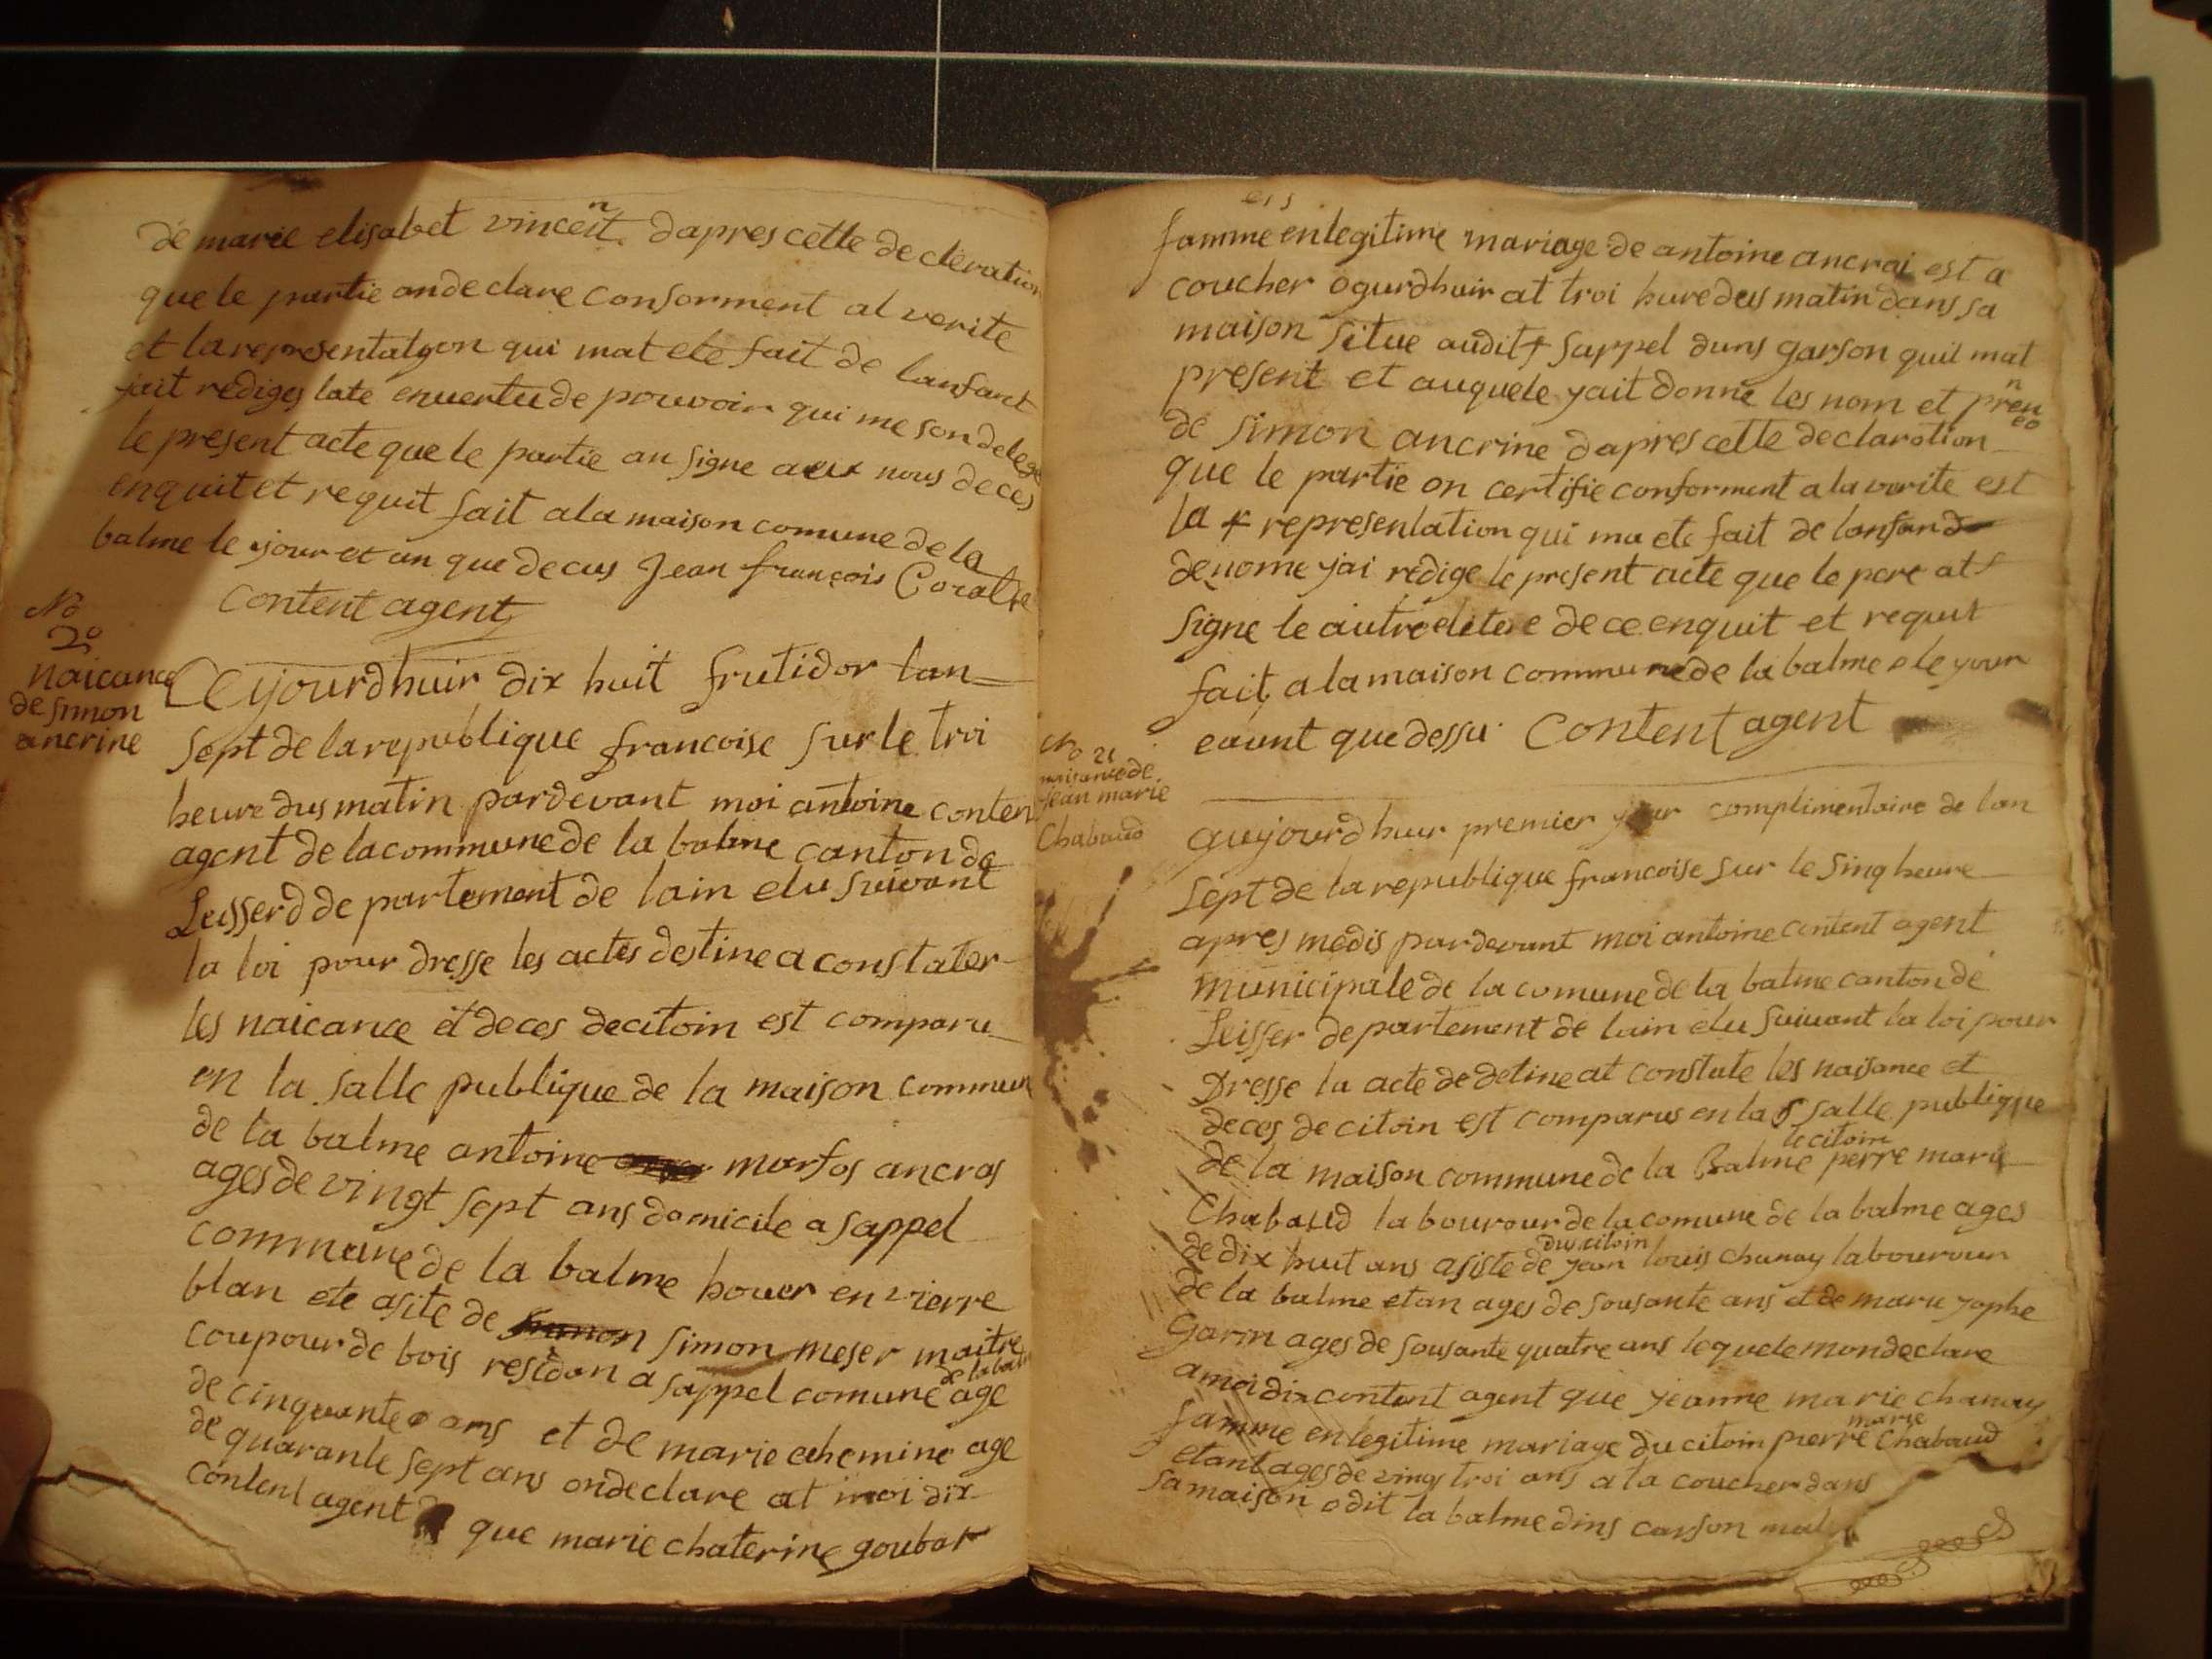 de marie elisabet vincent dapres cette decleration
que le partie ondeclare consorment al verite
et la representatyon qui mat ete fait de lanfant
jait rediges late envertu de pouvoir qui me son delege
le present acte que le partie an signe aux nous deces
enquit et requit fait a la maison comune de la
balme le jour et an que decus Jean françois
content agent
No
20
naicance
de simon
ancrine
Ceyjourdhuir dix huit frutidor lan
sept de la republique francoise sur le troi
heure dus matin pardevant moi antoine conten
agent de la commune de la balme canton de
Leisserd departement de lain elu suivant
la loi pour dresse les actes destine a constater
les naicance et deces decitoin est comparu
en la salle publique de la maison commun
de la balme antoine marfos ancros
ages de vingt sept ans domicile a sappel
commune de la balme houer en vierre
blan ete asite de simon meser maitre
coupour de bois residan a sappel comune de la balm age
de cinquante ans et de marie chemine age
de quarante sept ans ondeclare at moi dix
content agent que marie chaterine goubat
famme enlegitime mariage de antoine ancrai est a
coucher ogurdhuir at troi hure dus matin dans sa
maison situe audit sappel duns garson quil mat
present et auquele yait donne les nom et pren
de simon ancrine dapres cette declaration
que le partie on certifie conforment a la verite est
la representation qui ma ete fait de lonfand
denome yai redige le present acte que le pere at
signe le autre de ce enquit et requit
fait a la maison commune de la balme le your
eaunt que dessu Content agent
No 21
naisance de
jean marie
Chabaud
aujourdhuir premier your complimentaire de lan
sept de la republique francoise sur le sinq heure
apres medis pardevant moi antoine content agent
municipale de la comune de la balme canton de
Leisser departement de lain elu suivant la loi pour
Dresse la acte de detine at constate les naisance et
deces de citoin est comparus en la salle publique
de la maison commune de la Balme le citoin perre marie
Chabaud labourour de la comune de la balme ages
de dix huit ans asiste de du citoin jean louis chanay labourour
de la balme etan ages de sousante ans et de marie yophe
Garin ages de sousante quatre ans lequele mondeclare
a moi dix content agent que yeanne marie chanay
famme enlegitime mariage du citoin pierre marie Chabaud
etant ages de vingt troi ans a la coucher dans
sa maison odit la balme dins carson mat